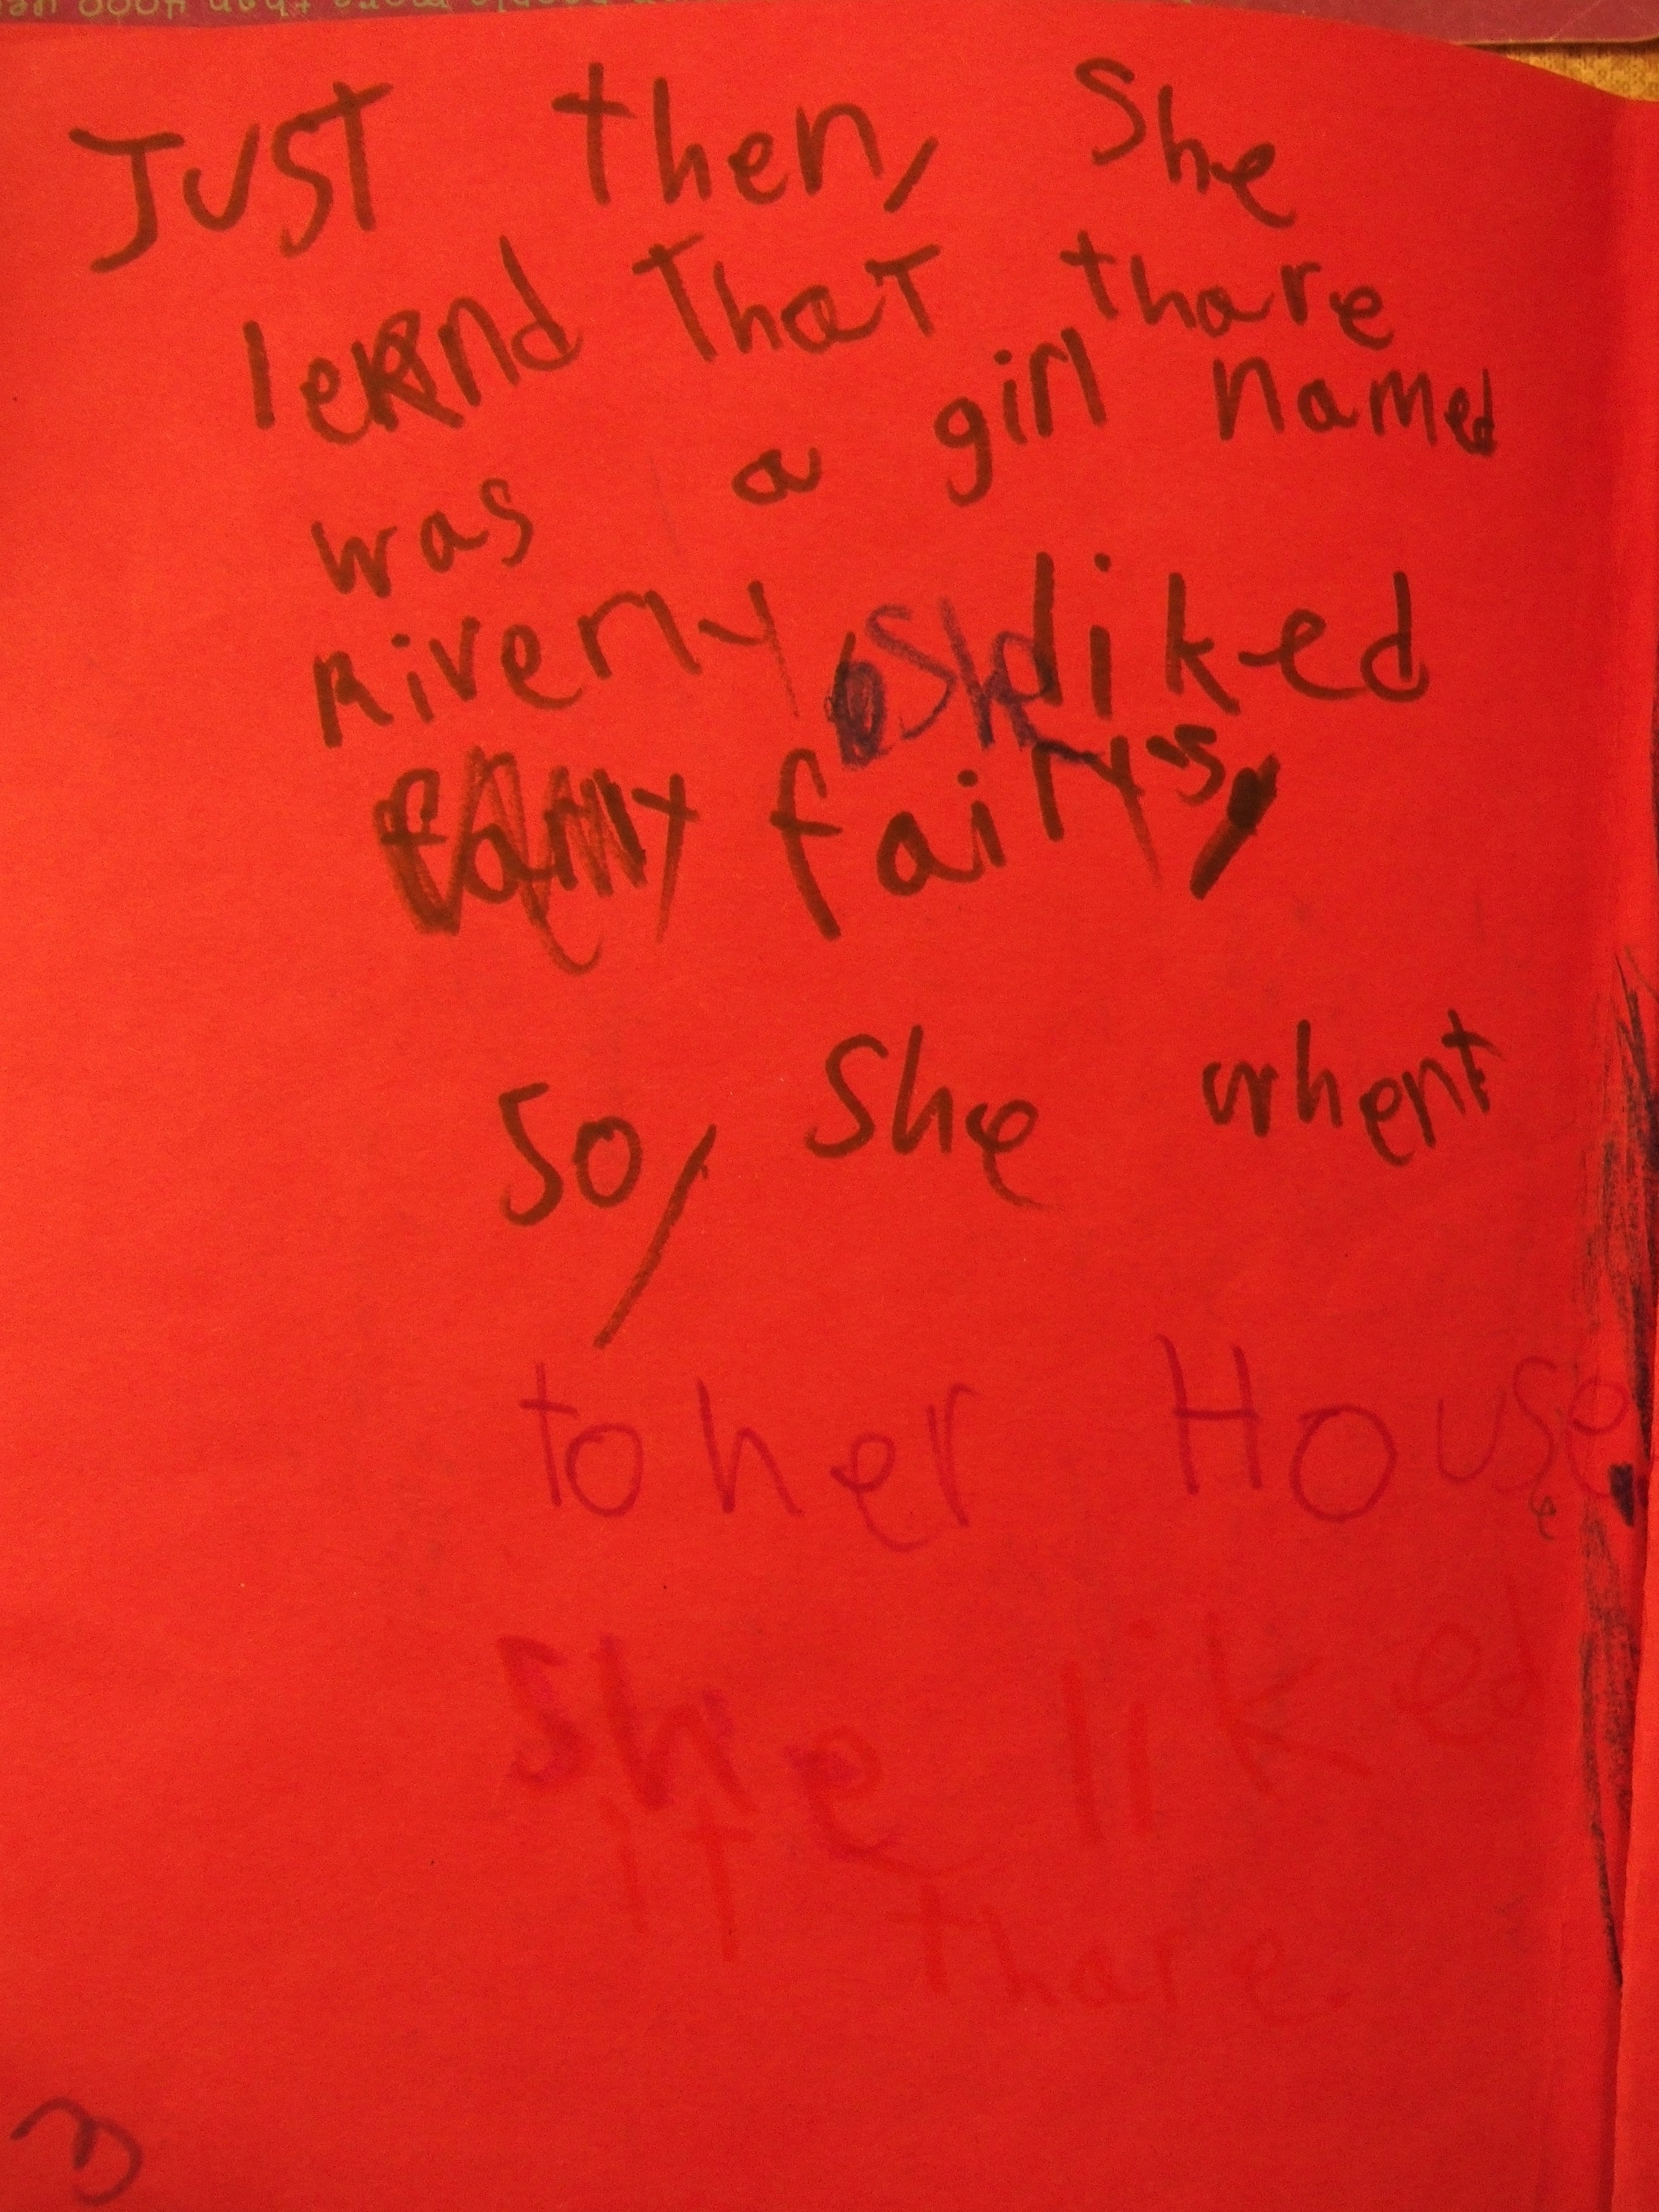 JUST then, She
lernd ThaT thare
was a girl named
Riverly she liked
fairy's,
So, She whent
to her House.
She liked
it thare.
3